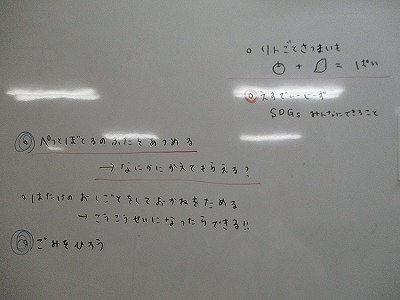 ○ りんごとさつまいも
+ = ぱい
○ えすでぃーじーず
SDGs みんなにできること
◎ ぺっとぼとるのふたをあつめる
→ なにかにかえてもらえる?
○ はたけのおしごとをしておかねをためる
→ こうこうせいになったらできる!!
◎ ごみをひろう